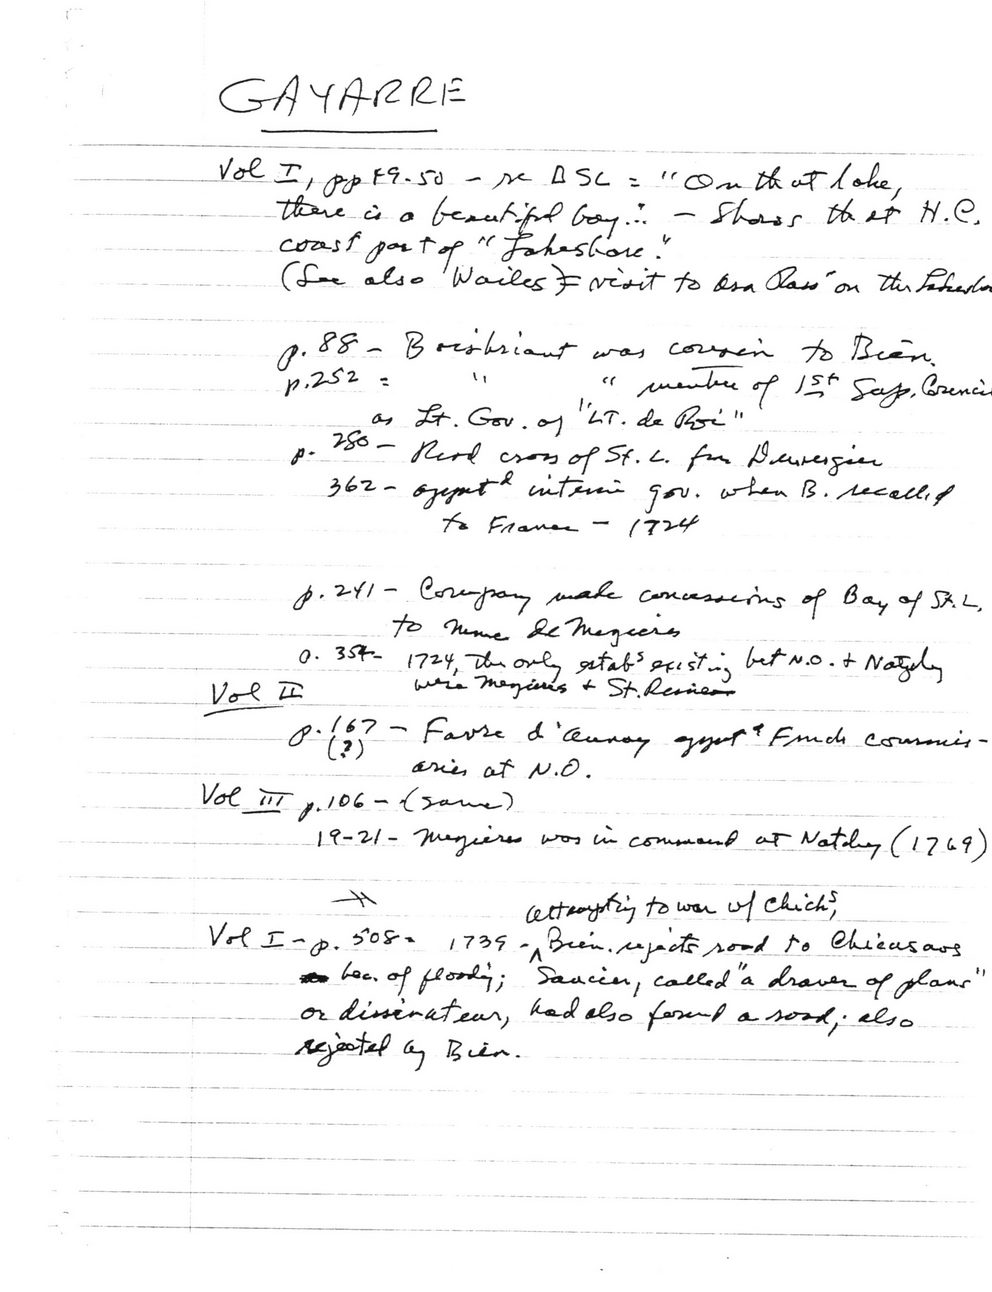 GAYARRE
Vol I, pp 49-50 - re BSL = "On that lake,
there is a beautiful bay..." - Shows that H.C.
coast part of "Lakeshore."
(See also Wailes' visit to on the
p. 88 - Boisbriant was cousin to Bien.
p. 252 = " " member of 1st Sup. Council
as Lt. Gov. or "LT. de Roi"
p. 280 - Recd cross of St. L. from Duvergier
362 - appntd interim gov. when B. recalled
to France - 1724
p. 241 - Company made concessions of Bay of St. L.
to Mme de Mezieres
p. 354 - 1724, the only estabs existing bet N.O. + Natchez
were Mezieres + St. Reine
Vol II
p. 167 - Favre d'Aunoy appntd French commis-
(?) aries at N.O.
Vol III p. 106 - (same)
19-21 - Mezieres was in command at Natchez (1769)
attempting to war w/ Chichs,
Vol I - p. 508 = 1739 - Bien. rejects road to Chicasaws
bec. of flooding; Saucier, called "a drawer of plans"
or dissinateur, had also found a road; also
rejected by Bien.